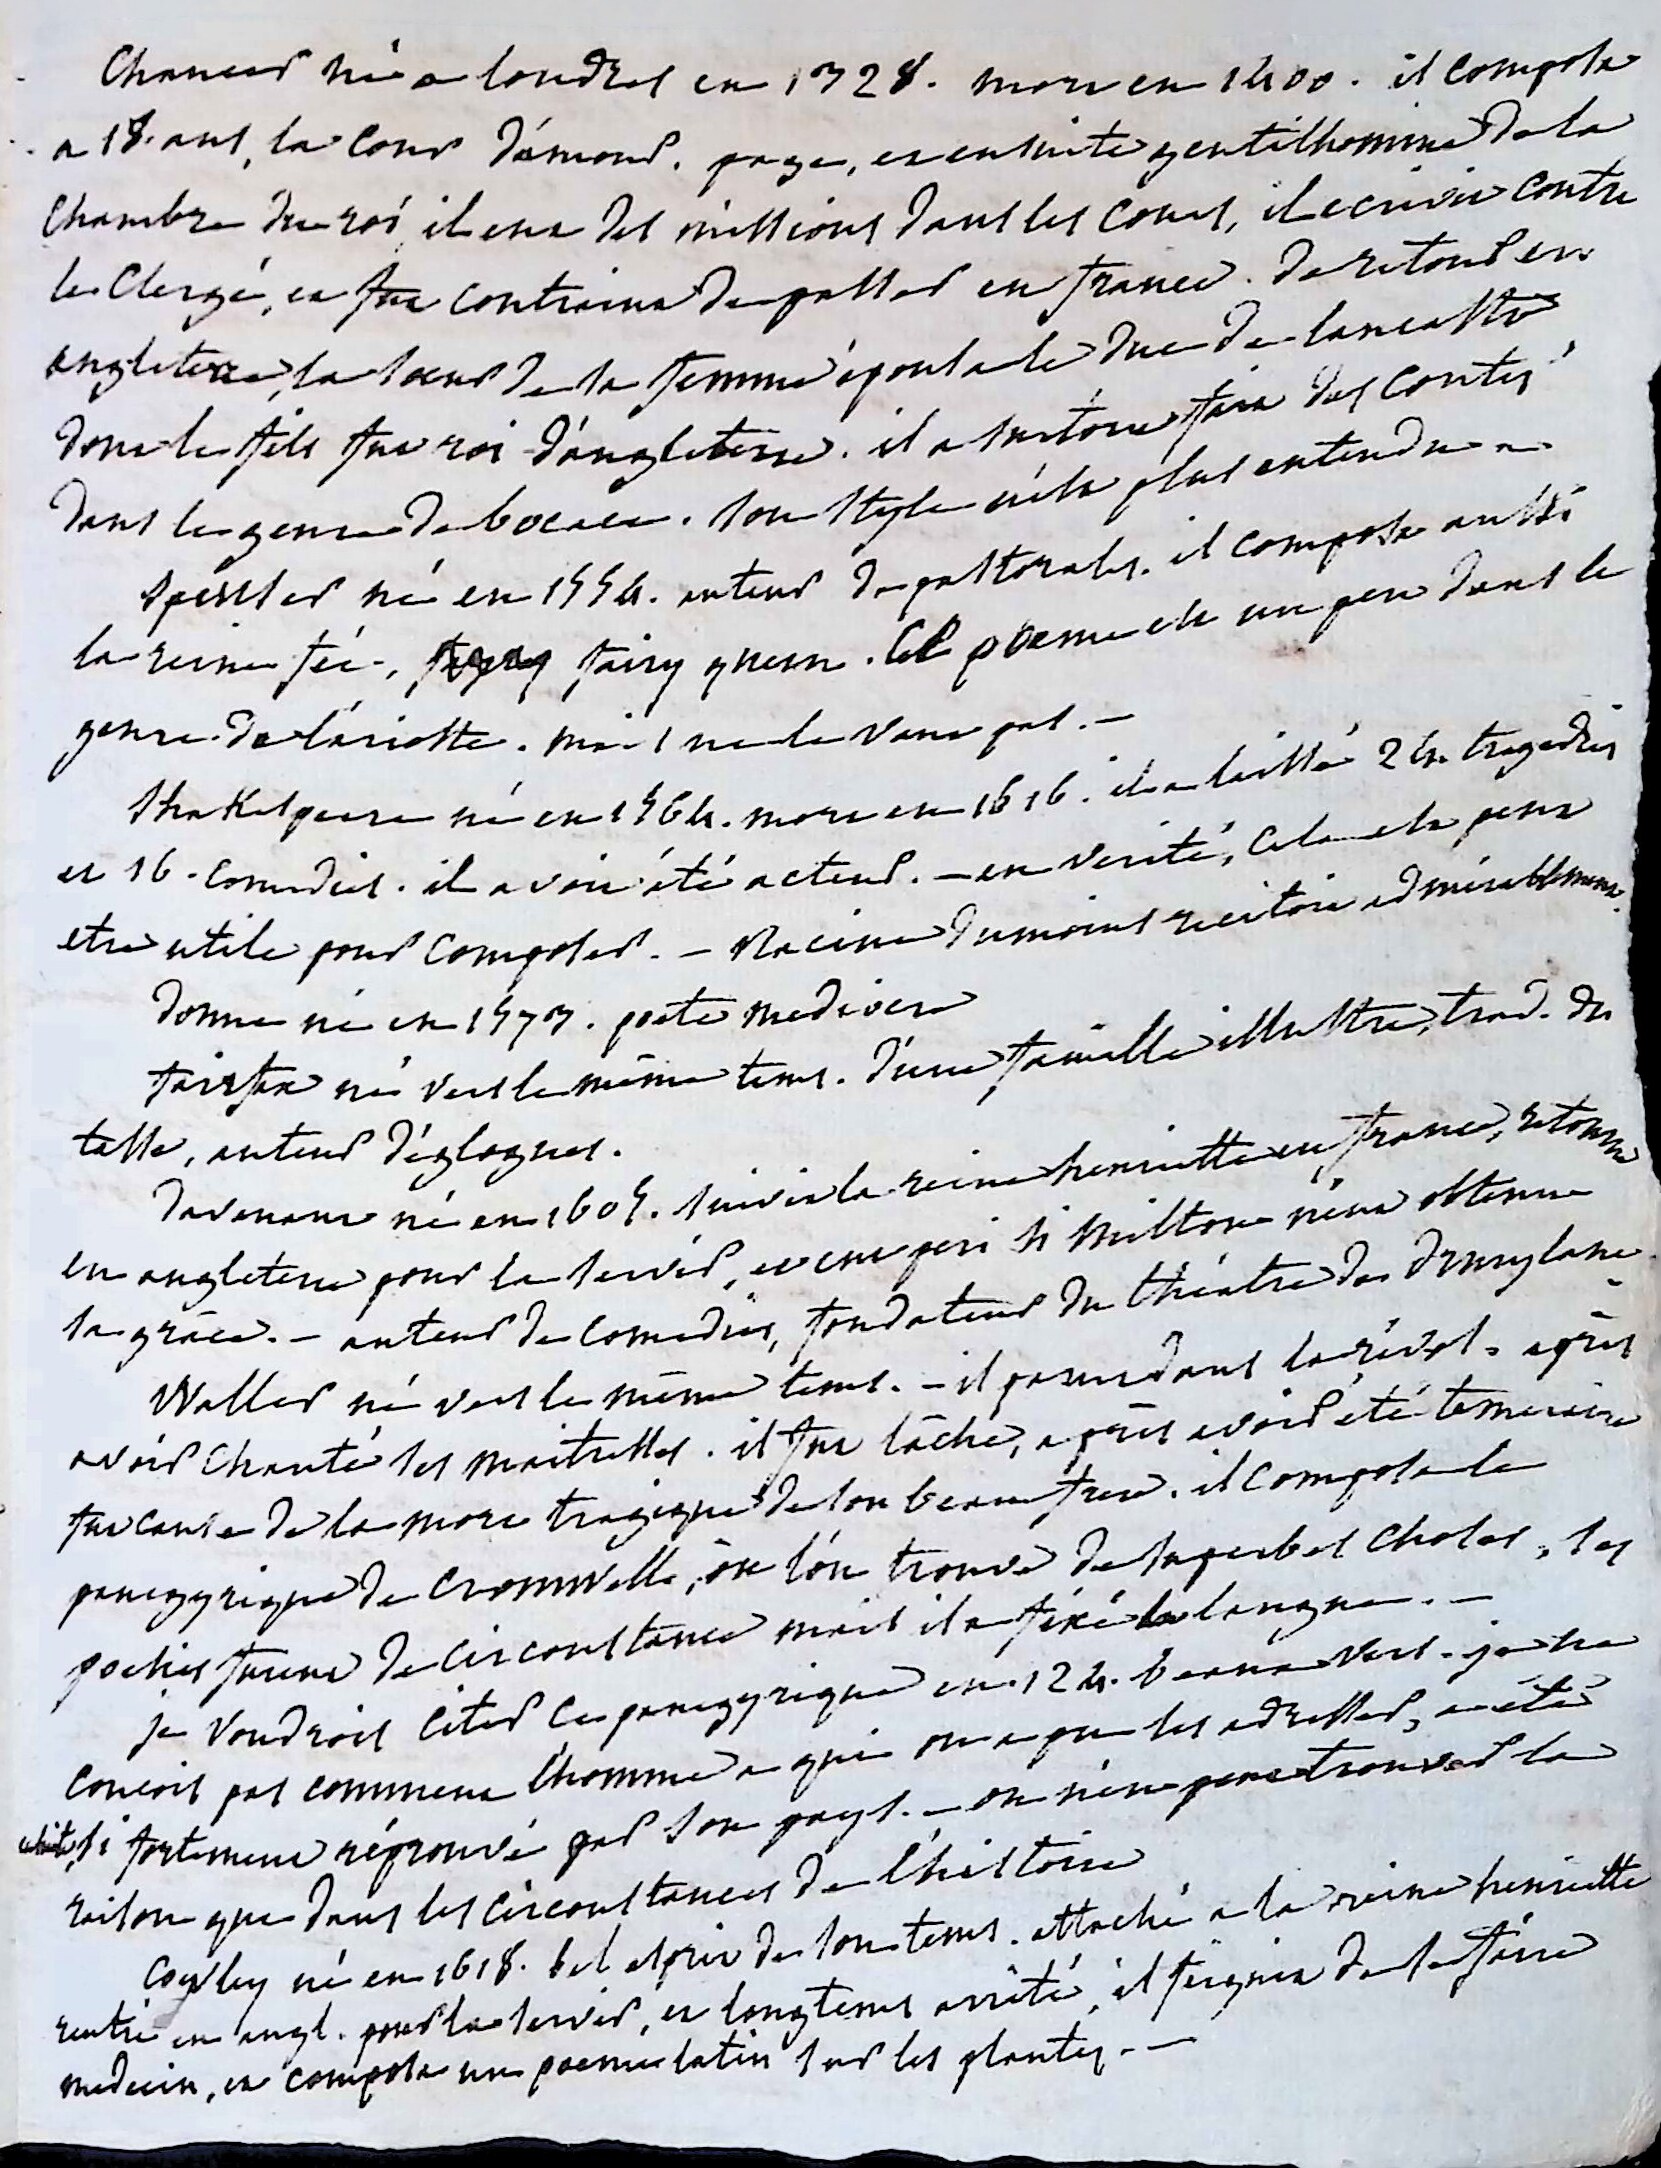 Chaucer né a londres en 1328. mort en 1400. il composa
a 18. ans, la cour d'amour. page, et ensuite gentilhomme de la
chambre du roi il eut des missions dans les cours, il ecrivit contre
le Clergé, et fut contraint de passer en france. de retour en
angleterre, la soeur de sa femme épousa le duc de lancastre
dont le fils fut roi d'angleterre. il a surtout fait des contes
dans le genre de bocace. son style n'est plus entendu -
Spensser né en 1554. auteur de pastorales. il composa aussi
la reine fée, fairy queen. Ce poeme est un peu dans le
genre de l'arioste. mais ne le vaut pas. -
Shakespeare né en 1564. mort en 1616. il a laissé 24. tragedies
et 16. comedies. il avoit été acteur. - en verité, cela est peut
etre utile pour composer. - Racine du moins recitoit admirablement.
donne né en 1573. poete mediocre
fairfax né vers le même tems. d'une famille illustre, trad. du
tasse, auteur d'églogues.
davenant né en 1605. suivit la reine henriette en france, retourna
en angleterre pour la servir, et eut peri si Milton n'eut obtenu
sa grâce. - auteur de comedies, fondateur du théatre de drurylane
Waller né vers le même tems. - il parut dans la révol. après
avoir chanté ses maitresses. il fut lâche, après avoir été temeraire
fut cause de la mort tragique de son beau frere. il composa le
panegyrique de Cromwell, où l'on trouve de superbes choses, ses
poesies furent de circonstance mais il a fixé la langue. -
je voudrois citer ce panegyrique en 124. beaux vers. je ne
conçois pas comment l'homme a qui on a pu les adresser, a été
ensuite, si fortement réprouvé par son pays. - on n'en peut trouver la
raison que dans les circonstances de l'histoire
Cowley né en 1618. bel esprit de son tems. attaché a la reine henriette
rentré en angl. pour la servir, et longtems arrêté, il feignit de se faire
medecin, et composa un poeme latin sur les plantes. -